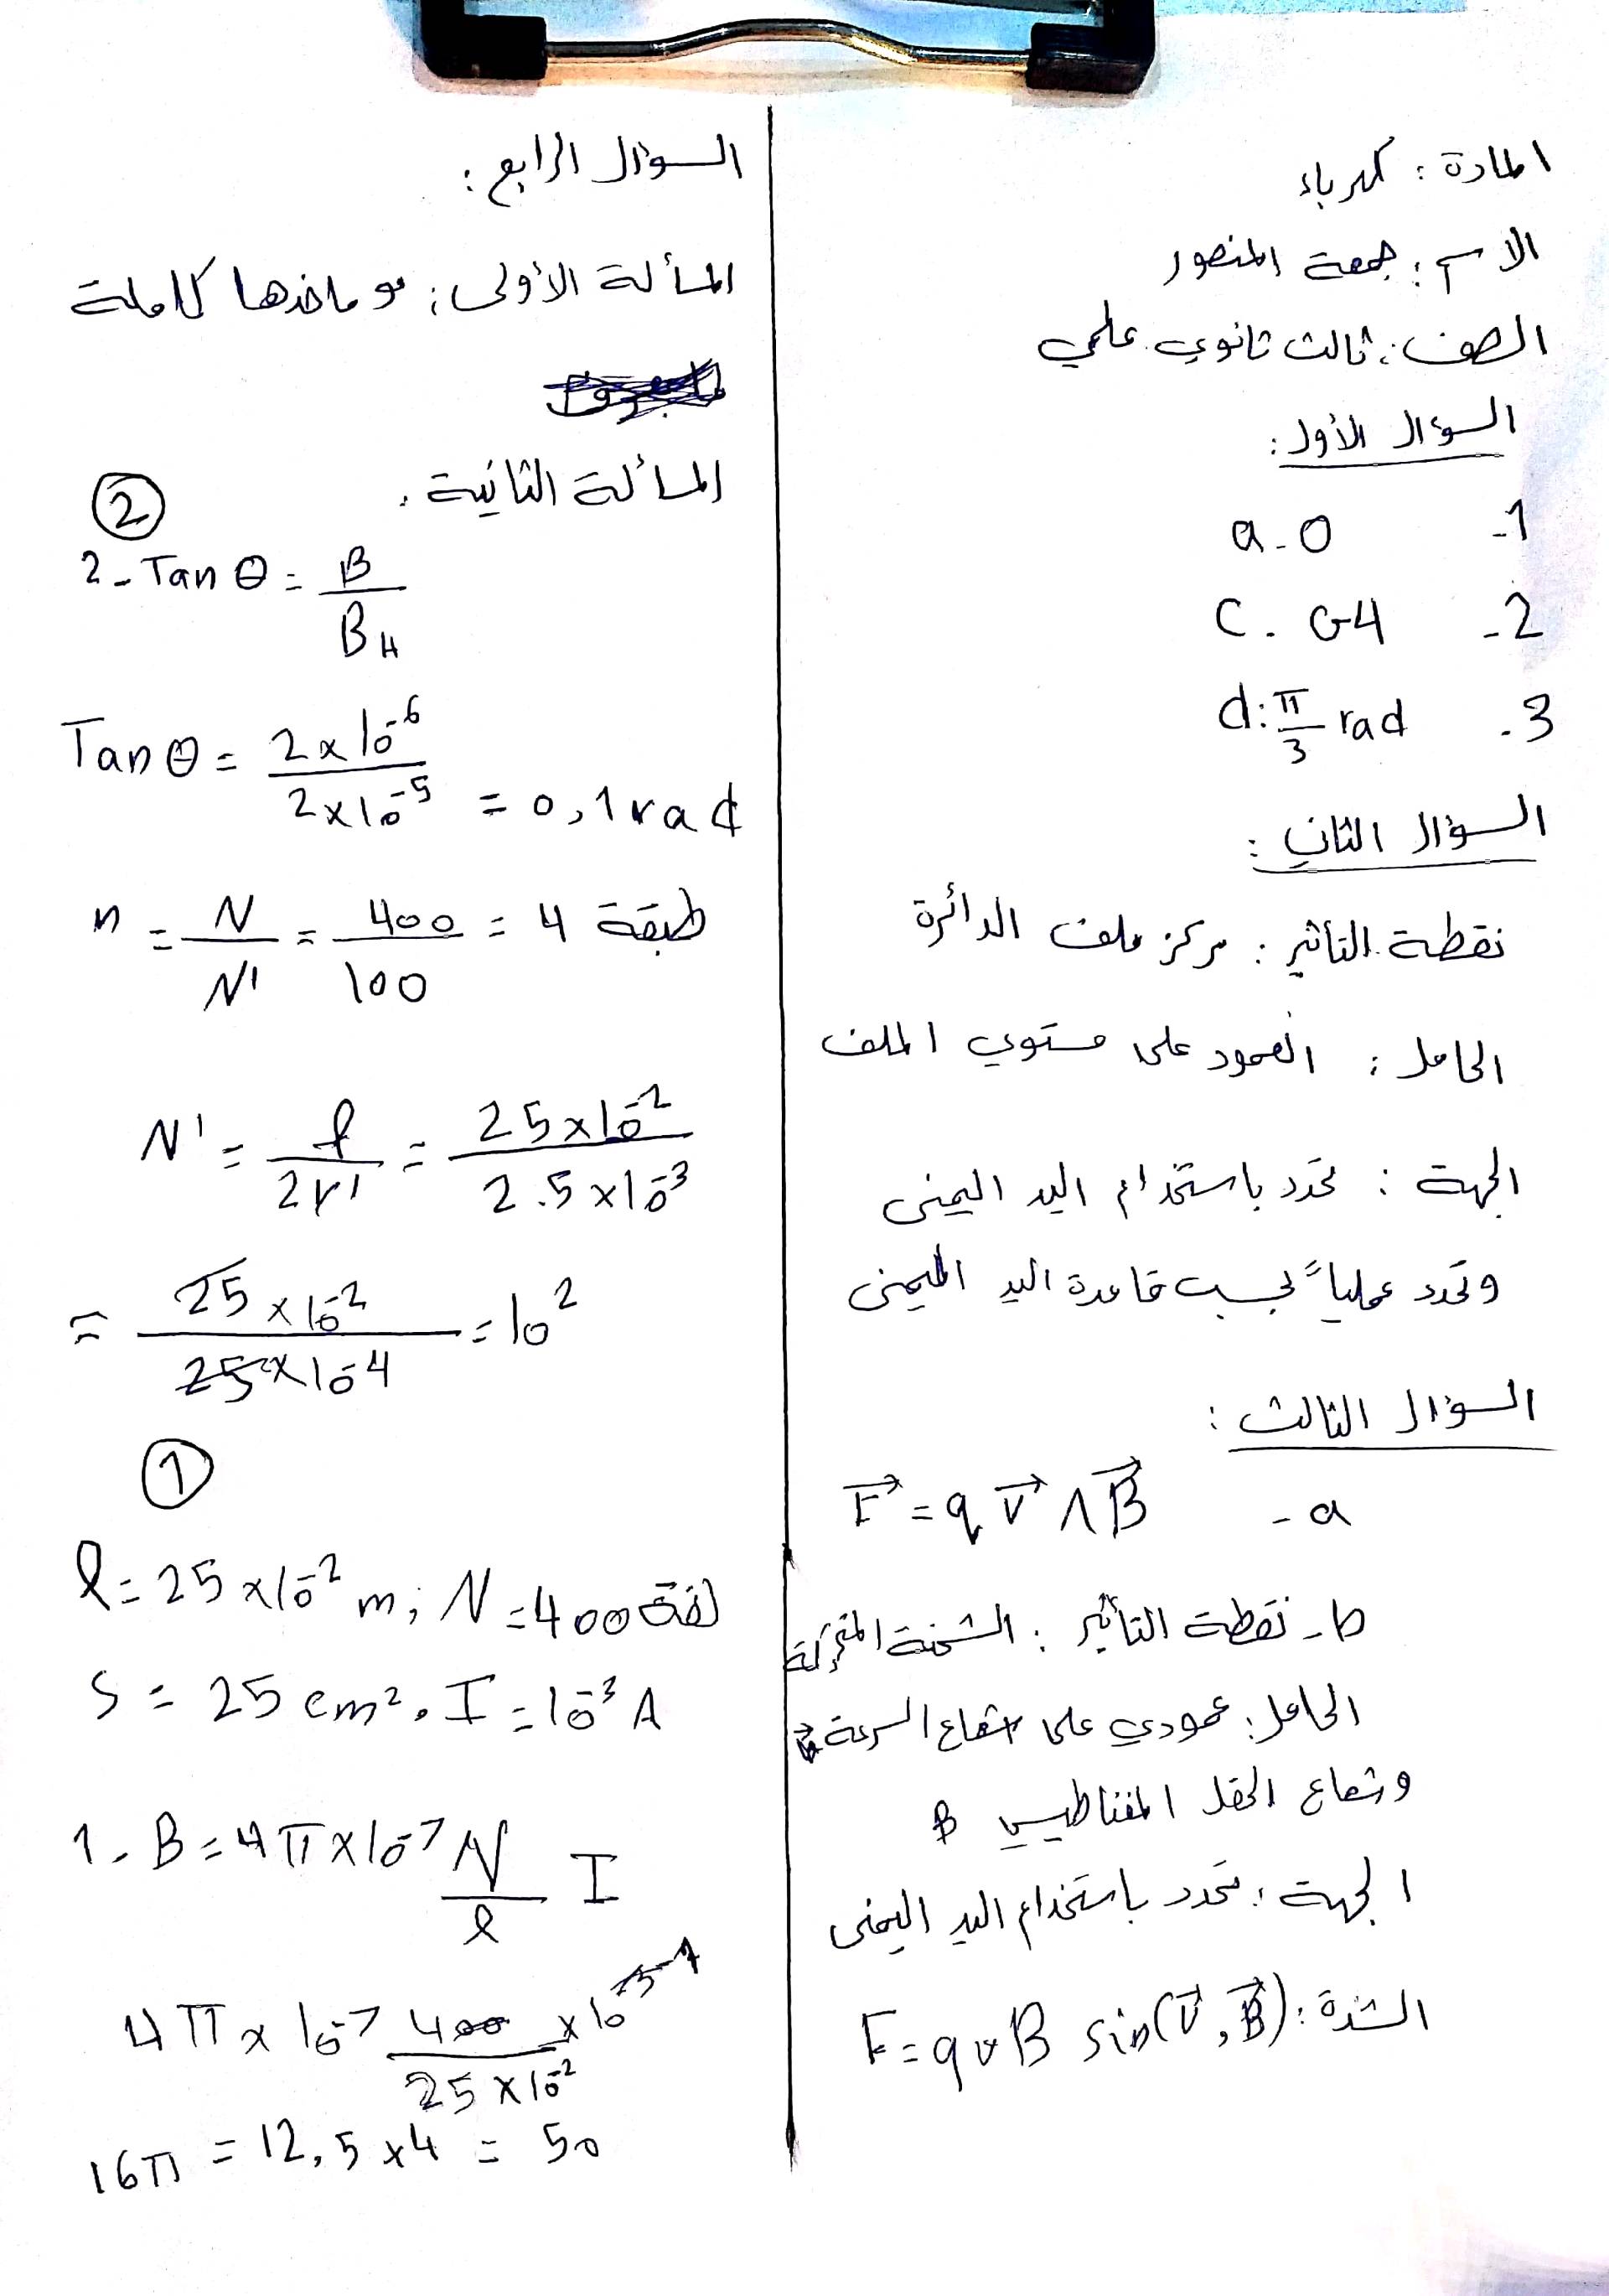 المادة : كهرباء
الاسم : جمعة المنصور
الصف : ثالث ثانوي علمي
السؤال الأول :
1- a - 0
2- C. G4
3- d: π/3 rad
السؤال الثاني :
نقطة التأثير : مركز ملف الدائرة
الحامل : العمود على مستوي الملف
الجهة : تحدد باستخدام اليد اليمنى
وتحدد عملياً بحسب قاعدة اليد اليمنى
السؤال الثالث :
a - F⃗ = q v⃗ ∧ B⃗
b - نقطة التأثير : الشحنة المتحركة
الحامل : عمودي على شعاع السرعة
وشعاع الحقل المغناطيسي B
الجهة : تحدد باستخدام اليد اليمنى
الشدة : F = q v B sin(v⃗, B⃗)
السؤال الرابع :
المسألة الأولى : مو ماخذها كاملة
المسألة الثانية .
②
2 - Tan θ = B / B_H
Tan θ = 2×10⁻⁶ / 2×10⁻⁵ = 0,1 rad
n = N / N' = 400 / 100 = 4 طبقة
N' = l / 2r' = 25×10⁻² / 2.5×10⁻³
= 25×10⁻² / 25×10⁻⁴ = 10²
①
l = 25×10⁻² m ; N = 400 لفة
S = 25 cm² . I = 10⁻³ A
1 - B = 4π×10⁻⁷ N / l I
4π × 10⁻⁷ 400 / 25×10⁻² × 10
16π = 12,5 × 4 = 50